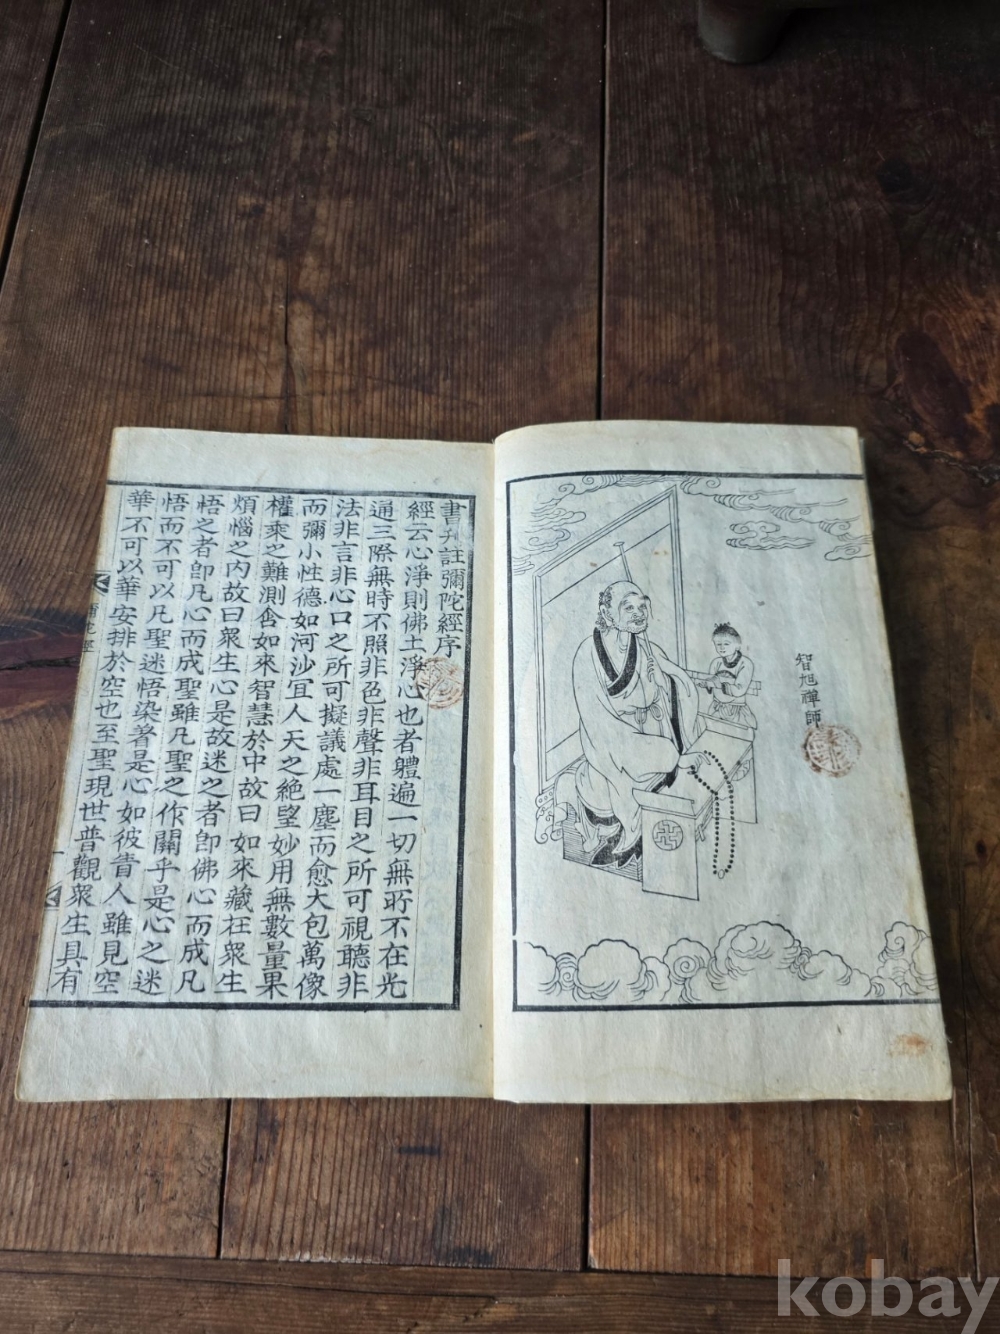 智旭禪師
書刋註彌陀經序
經云心淨則佛土淨心也者軆遍一切無所不在光
通三際無時不照非色非聲非耳目之所可視聽非
法非言非心口之所可擬議處一塵而愈大包萬像
而彌小性德如河沙宜人天之絶望妙用無數量果
權乘之難測含如來智慧於中故曰如來藏在衆生
煩惱之內故曰衆生心是故迷之者卽佛心而成凡
悟之者卽凡心而成聖雖凡聖之作關乎是心之迷
悟而不可以凡聖迷悟染著是心如彼眚人雖見空
華不可以華安排於空也至聖現世普觀衆生具有
彌陀經
一
kobay